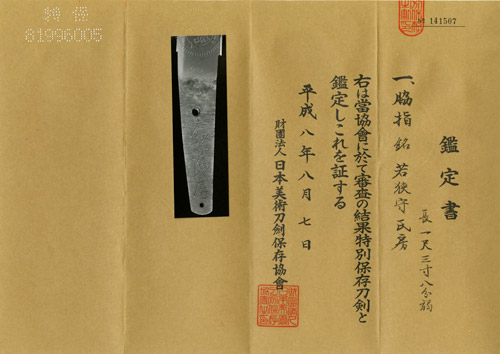 鑑定書
長一尺三寸八分弱
一、脇指 銘 若狭守氏房
右は當協會に於て審査の結果特別保存刀剣と
鑑定しこれを証する
平成八年八月七日
財團法人日本美術刀劍保存協會
№ 141507
特保
81996005